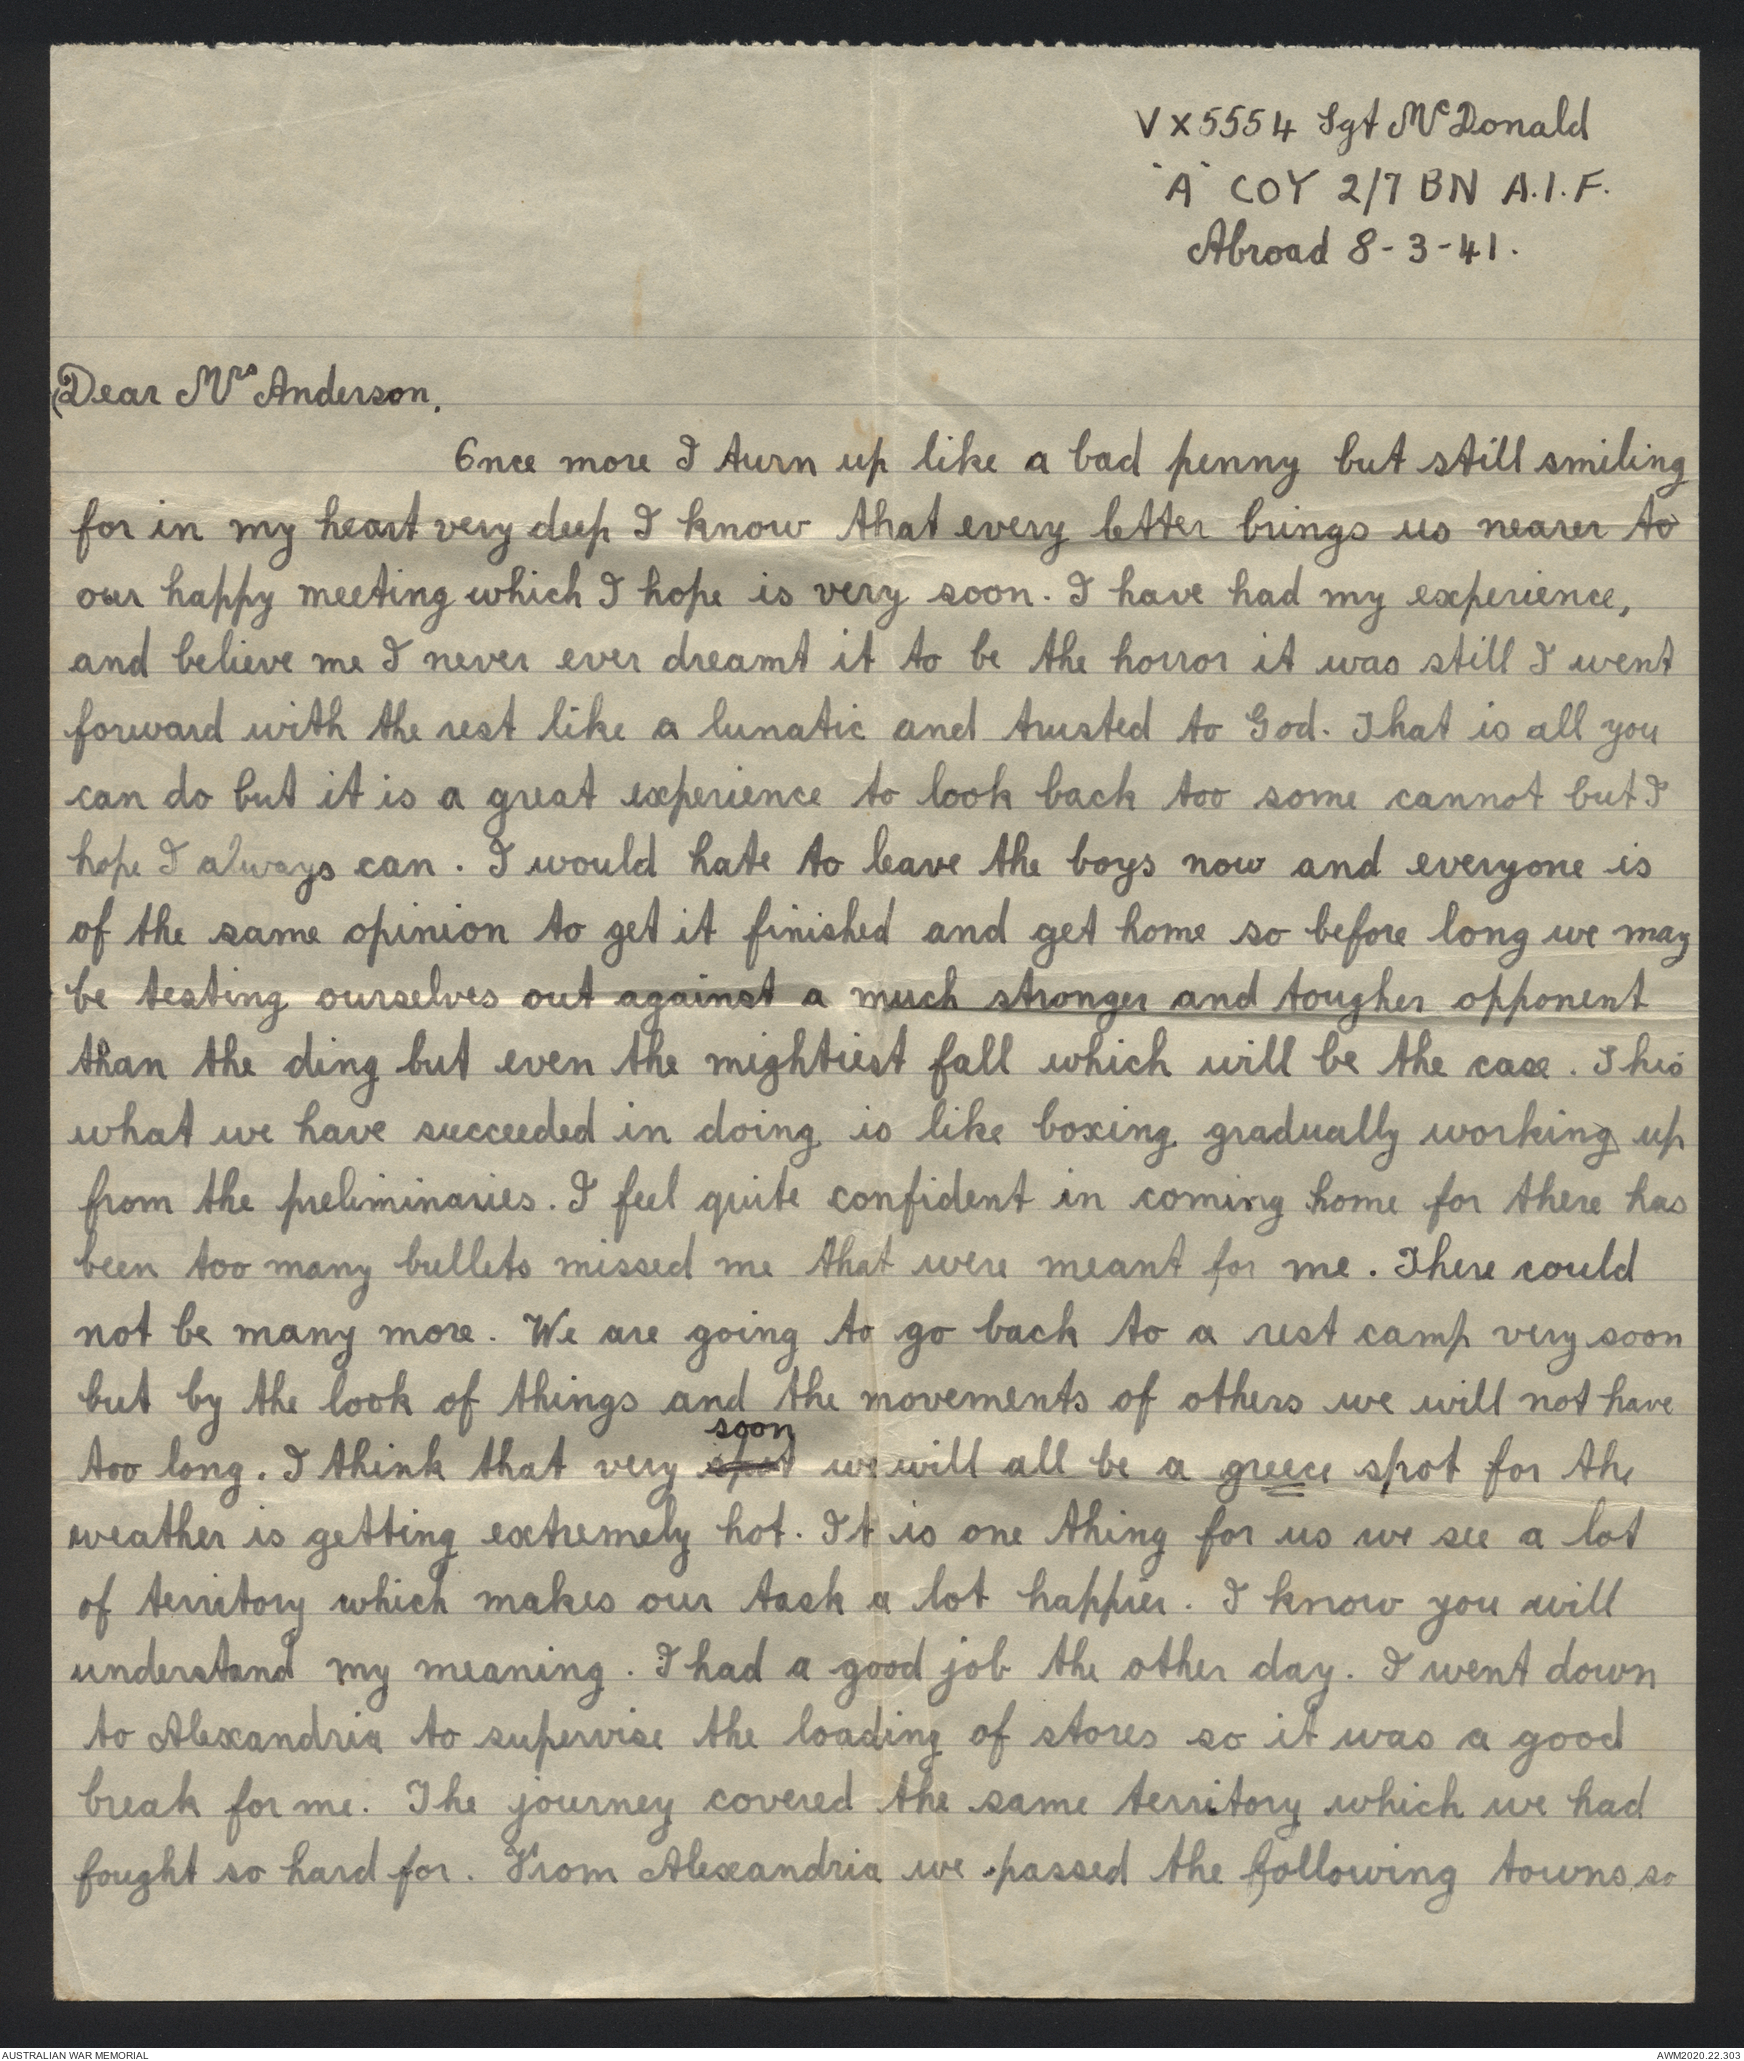 VX5554 Sgt McDonald
"A" COY 2/7 BN A.I.F.
Abroad 8-3-41.
Dear Mrs Anderson,
Once more I turn up like a bad penny but still smiling
for in my heart very deep I know that every letter brings us nearer to
our happy meeting which I hope is very soon. I have had my experience,
and believe me I never ever dreamt it to be the horror it was still I went
forward with the rest like a lunatic and trusted to God. That is all you
can do but it is a great experience to look back too some cannot but I
hope I always can. I would hate to leave the boys now and everyone is
of the same opinion to get it finished and get home so before long we may
be testing ourselves out against a much stronger and tougher opponent
than the ding but even the mightiest fall which will be the case. This
what we have succeeded in doing is like boxing gradually working up
from the preliminaries. I feel quite confident in coming home for there has
been too many bullets missed me that were meant for me. There could
not be many more. We are going to go back to a rest camp very soon
but by the look of things and the movements of others we will not have
soon
too long. I think that very spot we will all be a greece spot for the
weather is getting extremely hot. It is one thing for us we see a lot
of territory which makes our task a lot happier. I know you will
understand my meaning. I had a good job the other day. I went down
to Alexandria to supervise the loading of stores so it was a good
break for me. The journey covered the same territory which we had
fought so hard for. From Alexandria we passed the following towns so
AUSTRALIAN WAR MEMORIAL
AWM2020.22.303